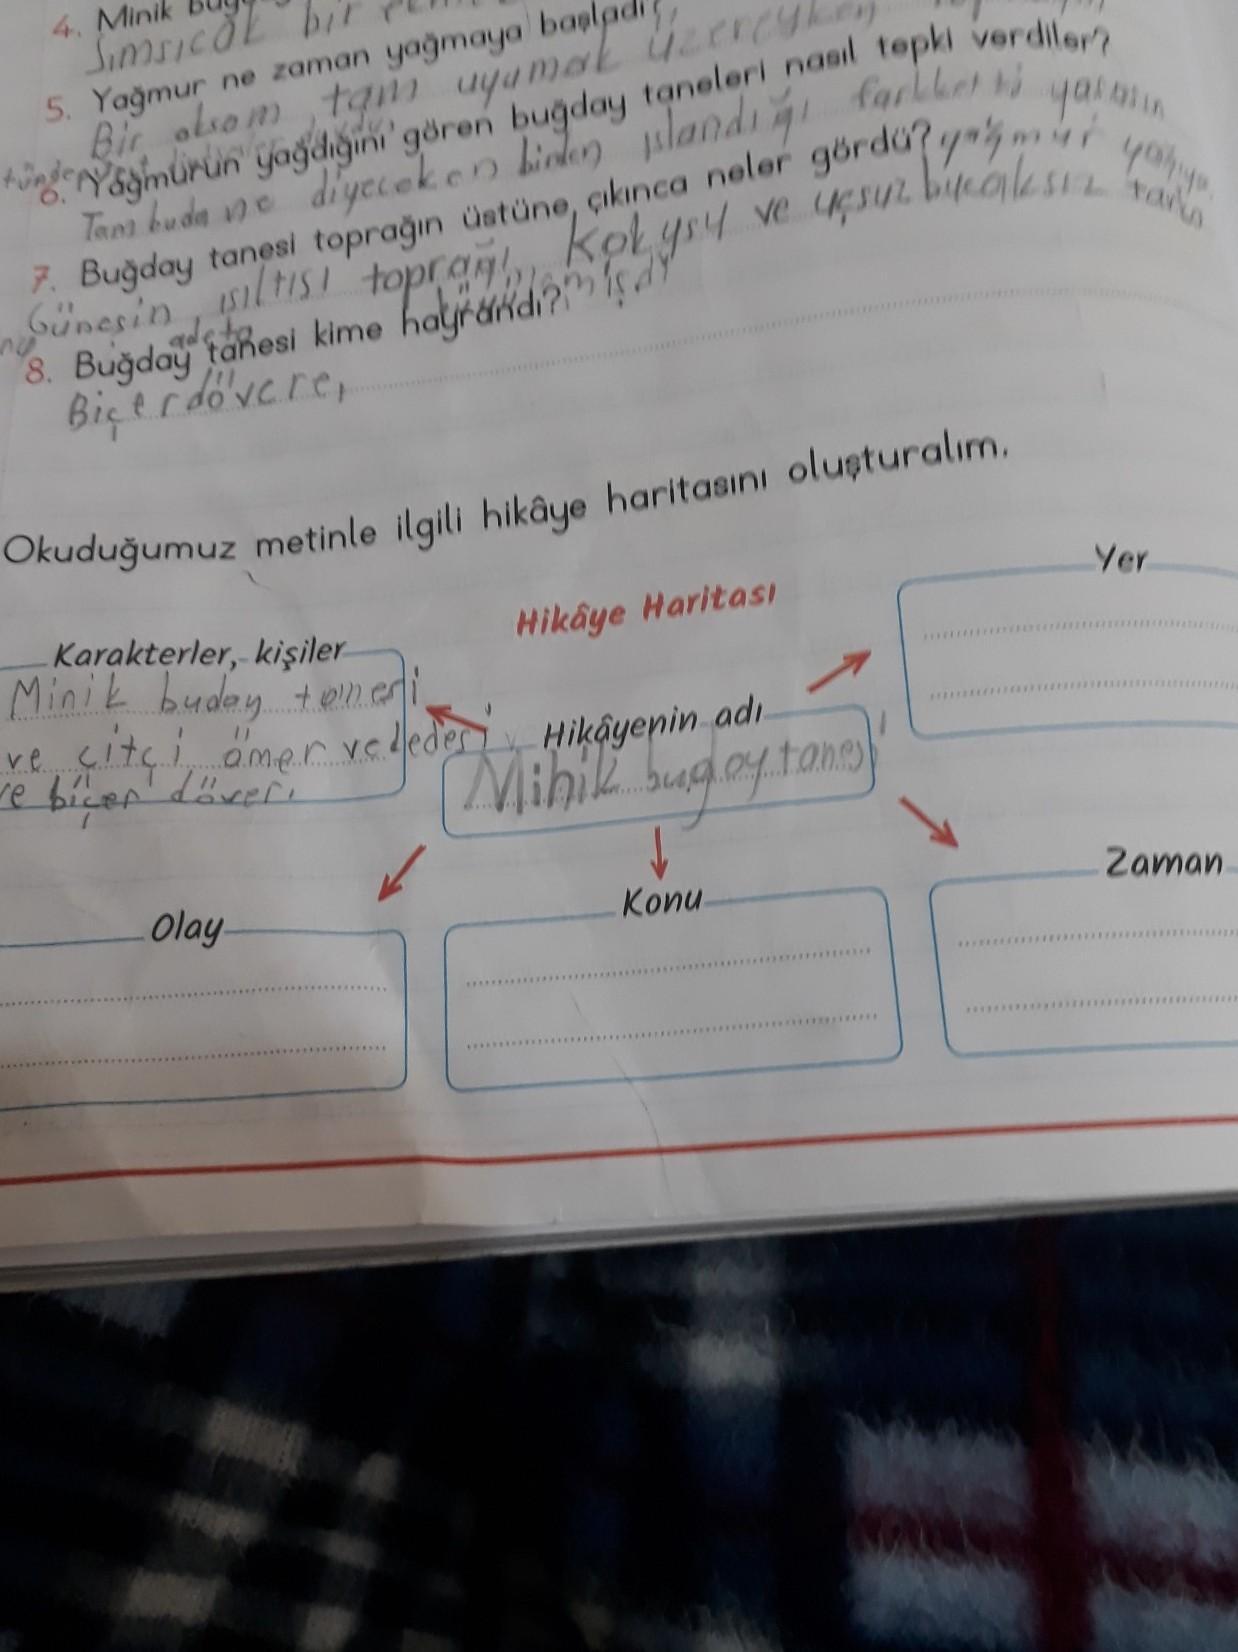 4. Minik
Sımsıcak bir
5. Yağmur ne zaman yağmaya başladı?
Bir aksam, tam uyumak üzereyken
6. Yağmurun yağdığını gören buğday taneleri nasıl tepki verdiler?
Tam buda ne diyeceken birden ıslandığı farkketti
7. Buğday tanesi toprağın üstüne çıkınca neler gördü?
Güneşin, ışıltısı toprağı, kokusu ve uçsuz bucaksız tarla
8. Buğday tanesi kime hayrandı?
Biçerdövere,
Okuduğumuz metinle ilgili hikâye haritasını oluşturalım.
Hikâye Haritası
Yer
Karakterler, kişiler
Minik buday tanesi
ve çitçi ömer ve dedesi
ve biçer döver.
Hikâyenin adı
Minik bugday tanesi
Zaman
Konu
Olay